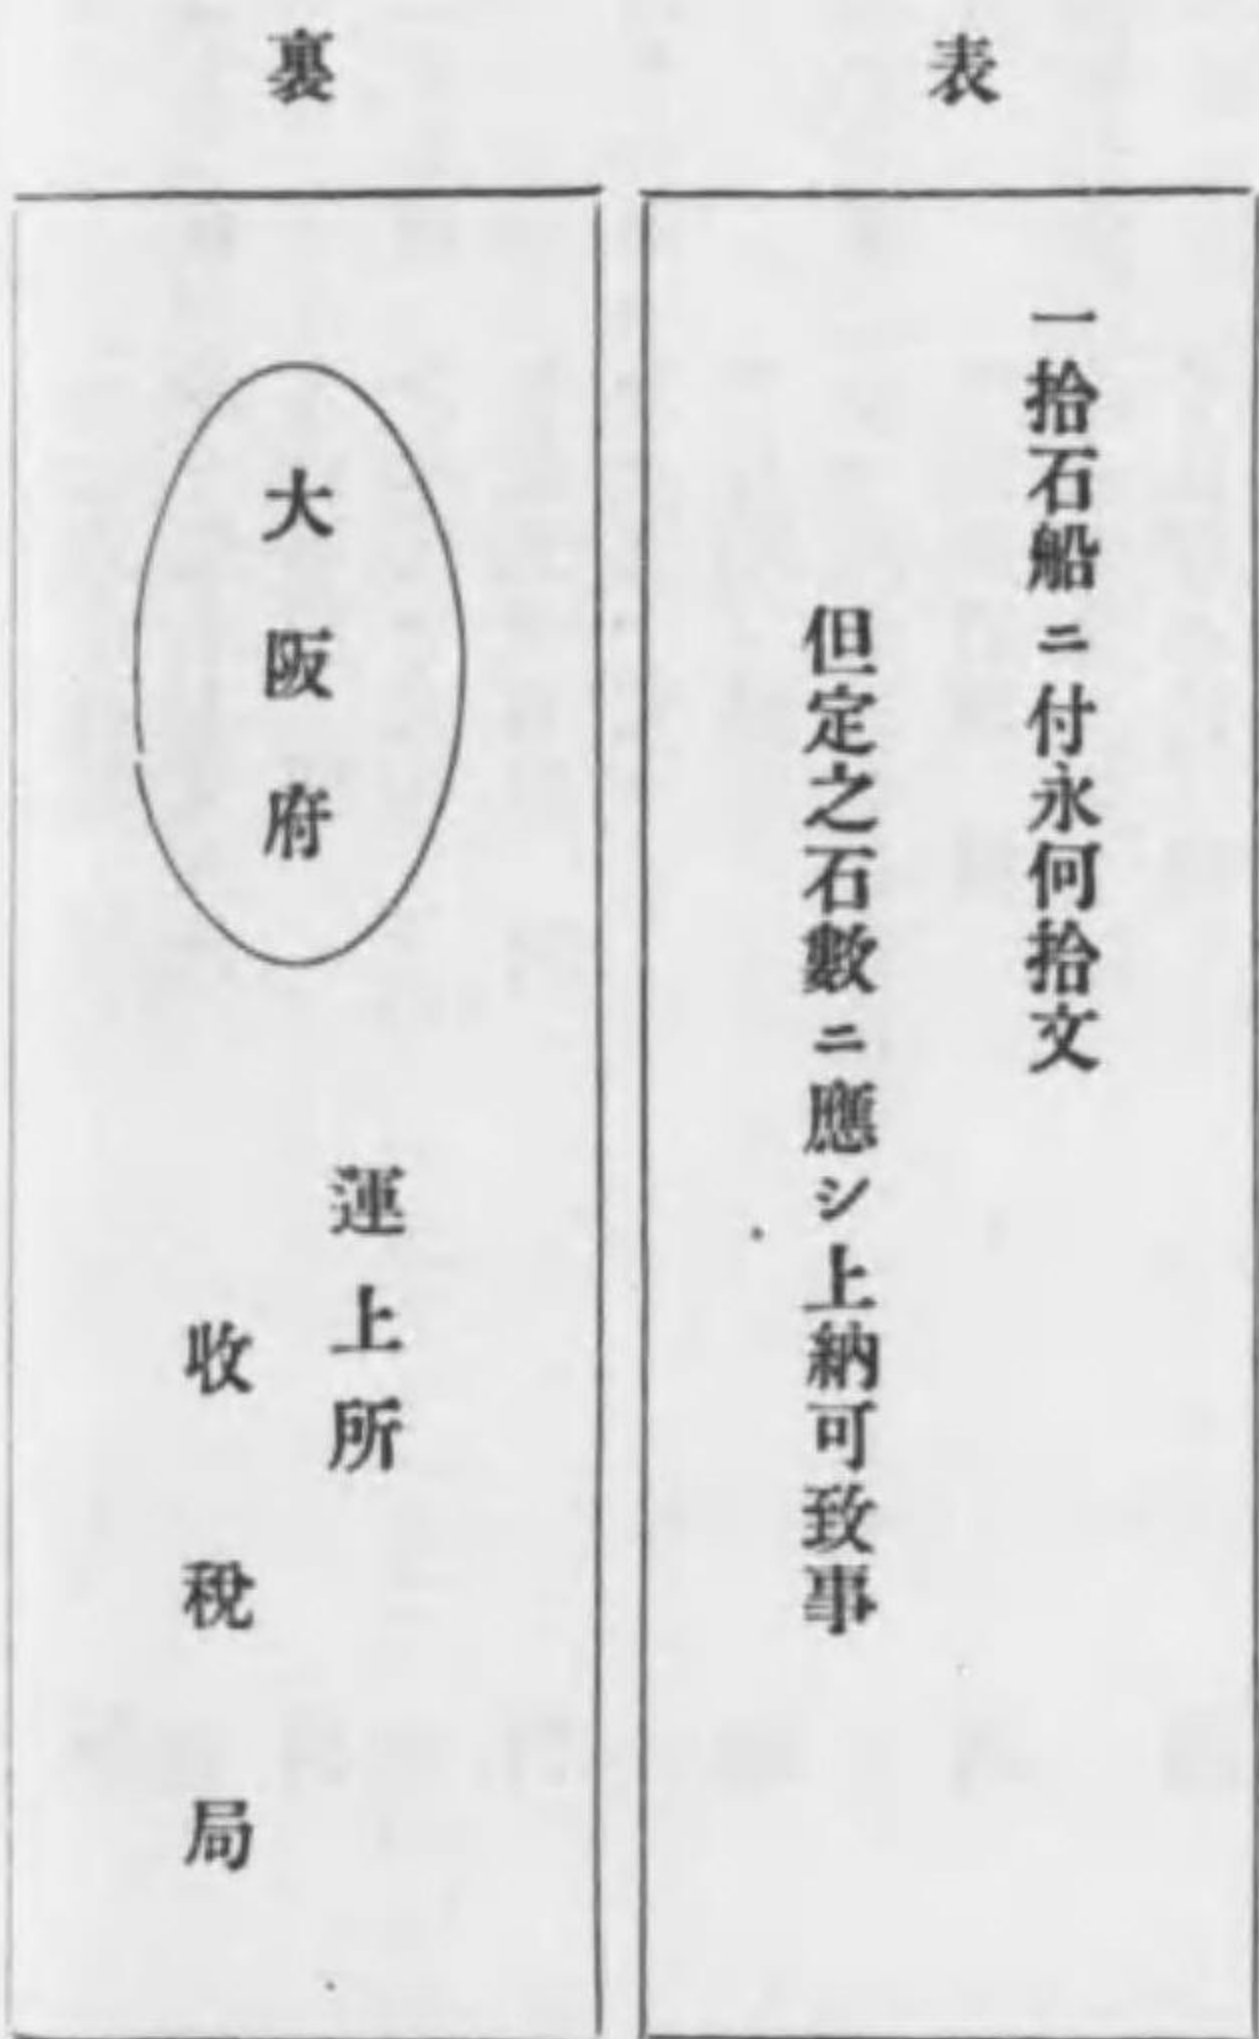 表
一拾石船ニ付永何拾文
但定之石數ニ應シ上納可致事
裏
大阪府
運上所
收税局